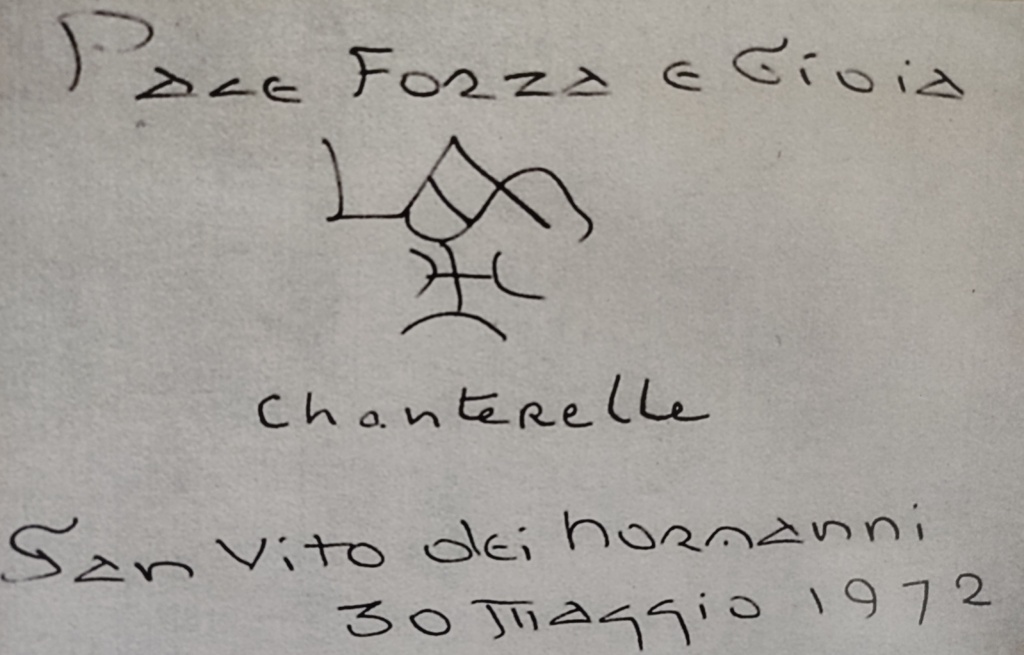 Pace Forza e Gioia
Chanterelle
San Vito dei Normanni
30 Maggio 1972